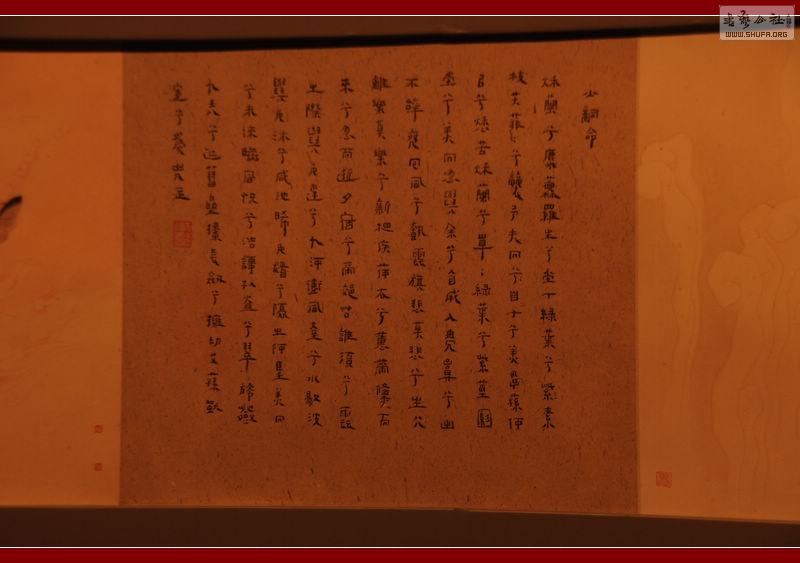 少司命
秋蘭兮麋蕪羅生兮堂下綠葉兮素
枝芳菲兮襲予夫人兮自有兮美子蓀何
以兮愁苦秋蘭兮青綠葉兮紫莖滿
堂兮美人忽與余兮目成入不言兮出
不辭乘回風兮載雲旗悲莫悲兮生別
離樂莫樂兮新相知荷衣兮蕙帶儵而
來兮忽而逝夕宿兮帝郊君誰須兮雲
之際與女遊兮九河衝風至兮水揚波
與女沐兮咸池晞女髮兮陽之阿望美人
兮未來臨風怳兮浩歌孔蓋兮翠旍登
九天兮撫彗星竦長劍兮擁幼艾蓀獨
宜兮為民正
书艺公社
WWW.SHUFA.ORG